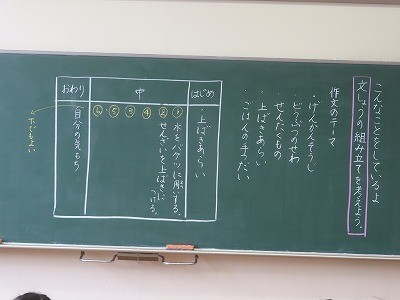 こんなことをしているよ
文しょうの組み立てを考えよう。
作文のテーマ
・げんかんそうじ
・どうぶつのせわ
・せんたくもの
・上ばきあらい
・ごはんの手つだい
はじめ
・上ばきあらい
中
① 水をバケツに用いする。
② せんざいを上ばきに
つける。
③
④
⑤
⑥
おわり
・自分の気もち
下でもよい